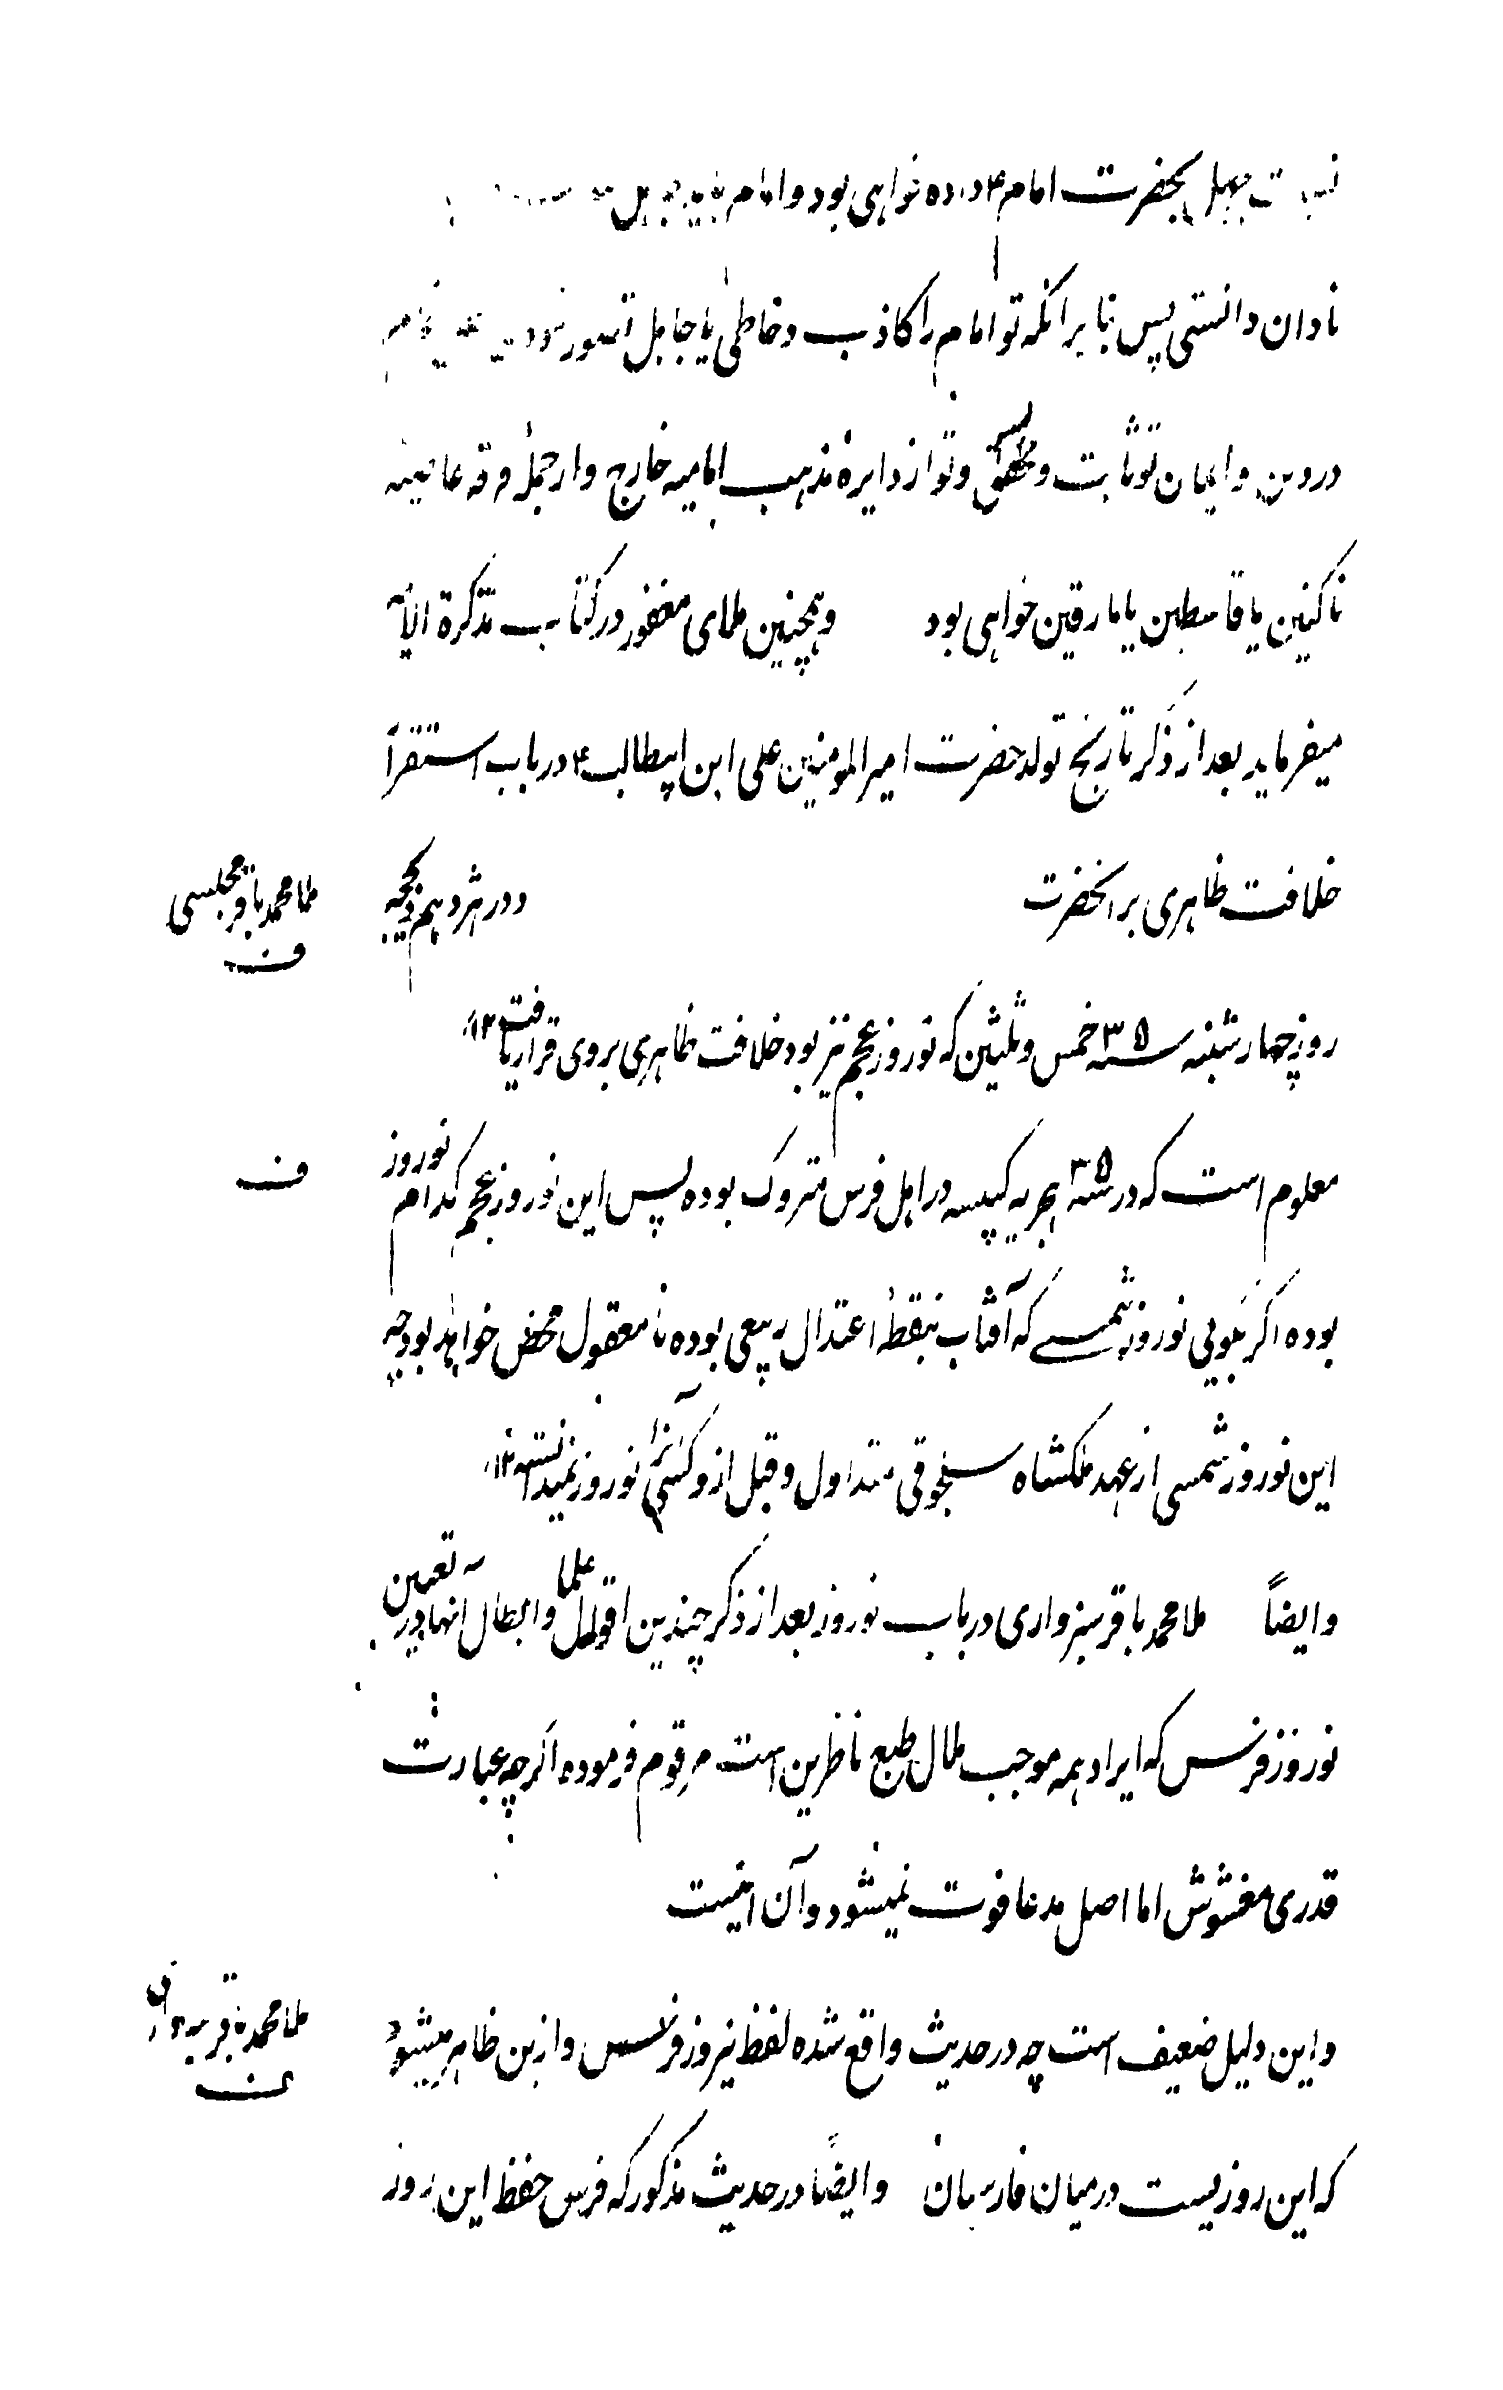 بجهل بحضرت امام ۴ داده خواهی بود و امام
نادان دانستی پس بنا برانکه تو امام را کاذب و خاطی یا جاهل تصور
در دین و ایمان تو ثابت و و تو از دایره مذهب امامیه خارج و از جملهٔ فرقه
ناکثین یا قاسطین یا مارقین خواهی بود وهمچنین ملای مغفور در کتاب تذکرة الایمه
میفرماید بعد از ذکر تاریخ تولد حضرت امیر المومنین علی ابن ابیطالب ۴ در باب استقرار
خلافت ظاهری بر انحضرت ودر هژدهم ذیحجه
ملا محمد باقر مجلسی
ف
روز چهار شنبه سنه ۳۵ خمس و ثلثین که نوروز عجم نیز بود خلافت ظاهری بروی قرار یافت ۱۲
معلوم است که در سنه ۳۵ هجریه کبیسه در اهل فرس متروک بوده پس این نوروز عجم کدام نوروز
ف
بوده اکر بکویی نوروز شمسی که آفتاب بنقطهٔ اعتدال ربیعی بوده نامعقول محض خواهد بود چه
این نوروز شمسی از عهد ملکشاه سلجوقی متداول و قبل ازو کسی آنرا نوروز نمیدانسته ۱۲
وایضاً ملا محمد باقر سبزواری در باب نوروز بعد از ذکر چندین اقوال علما وابطال انها در تعین
نوروز فرس که ایراد همه موجب ملال طبع ناظرین است مرقوم فرموده اکرچه عبارتش
قدری مغشوش اما اصل مدعا فوت نمیشود و آن اینست
واین دلیل ضعیف است چه در حدیث واقع شده لفظ نیروز فرس وازین ظاهر میشود
ملا محمد باقر
ف
که این روزیست درمیان فارسیان وایضاً در حدیث مذکور که فرس حفظ این روز